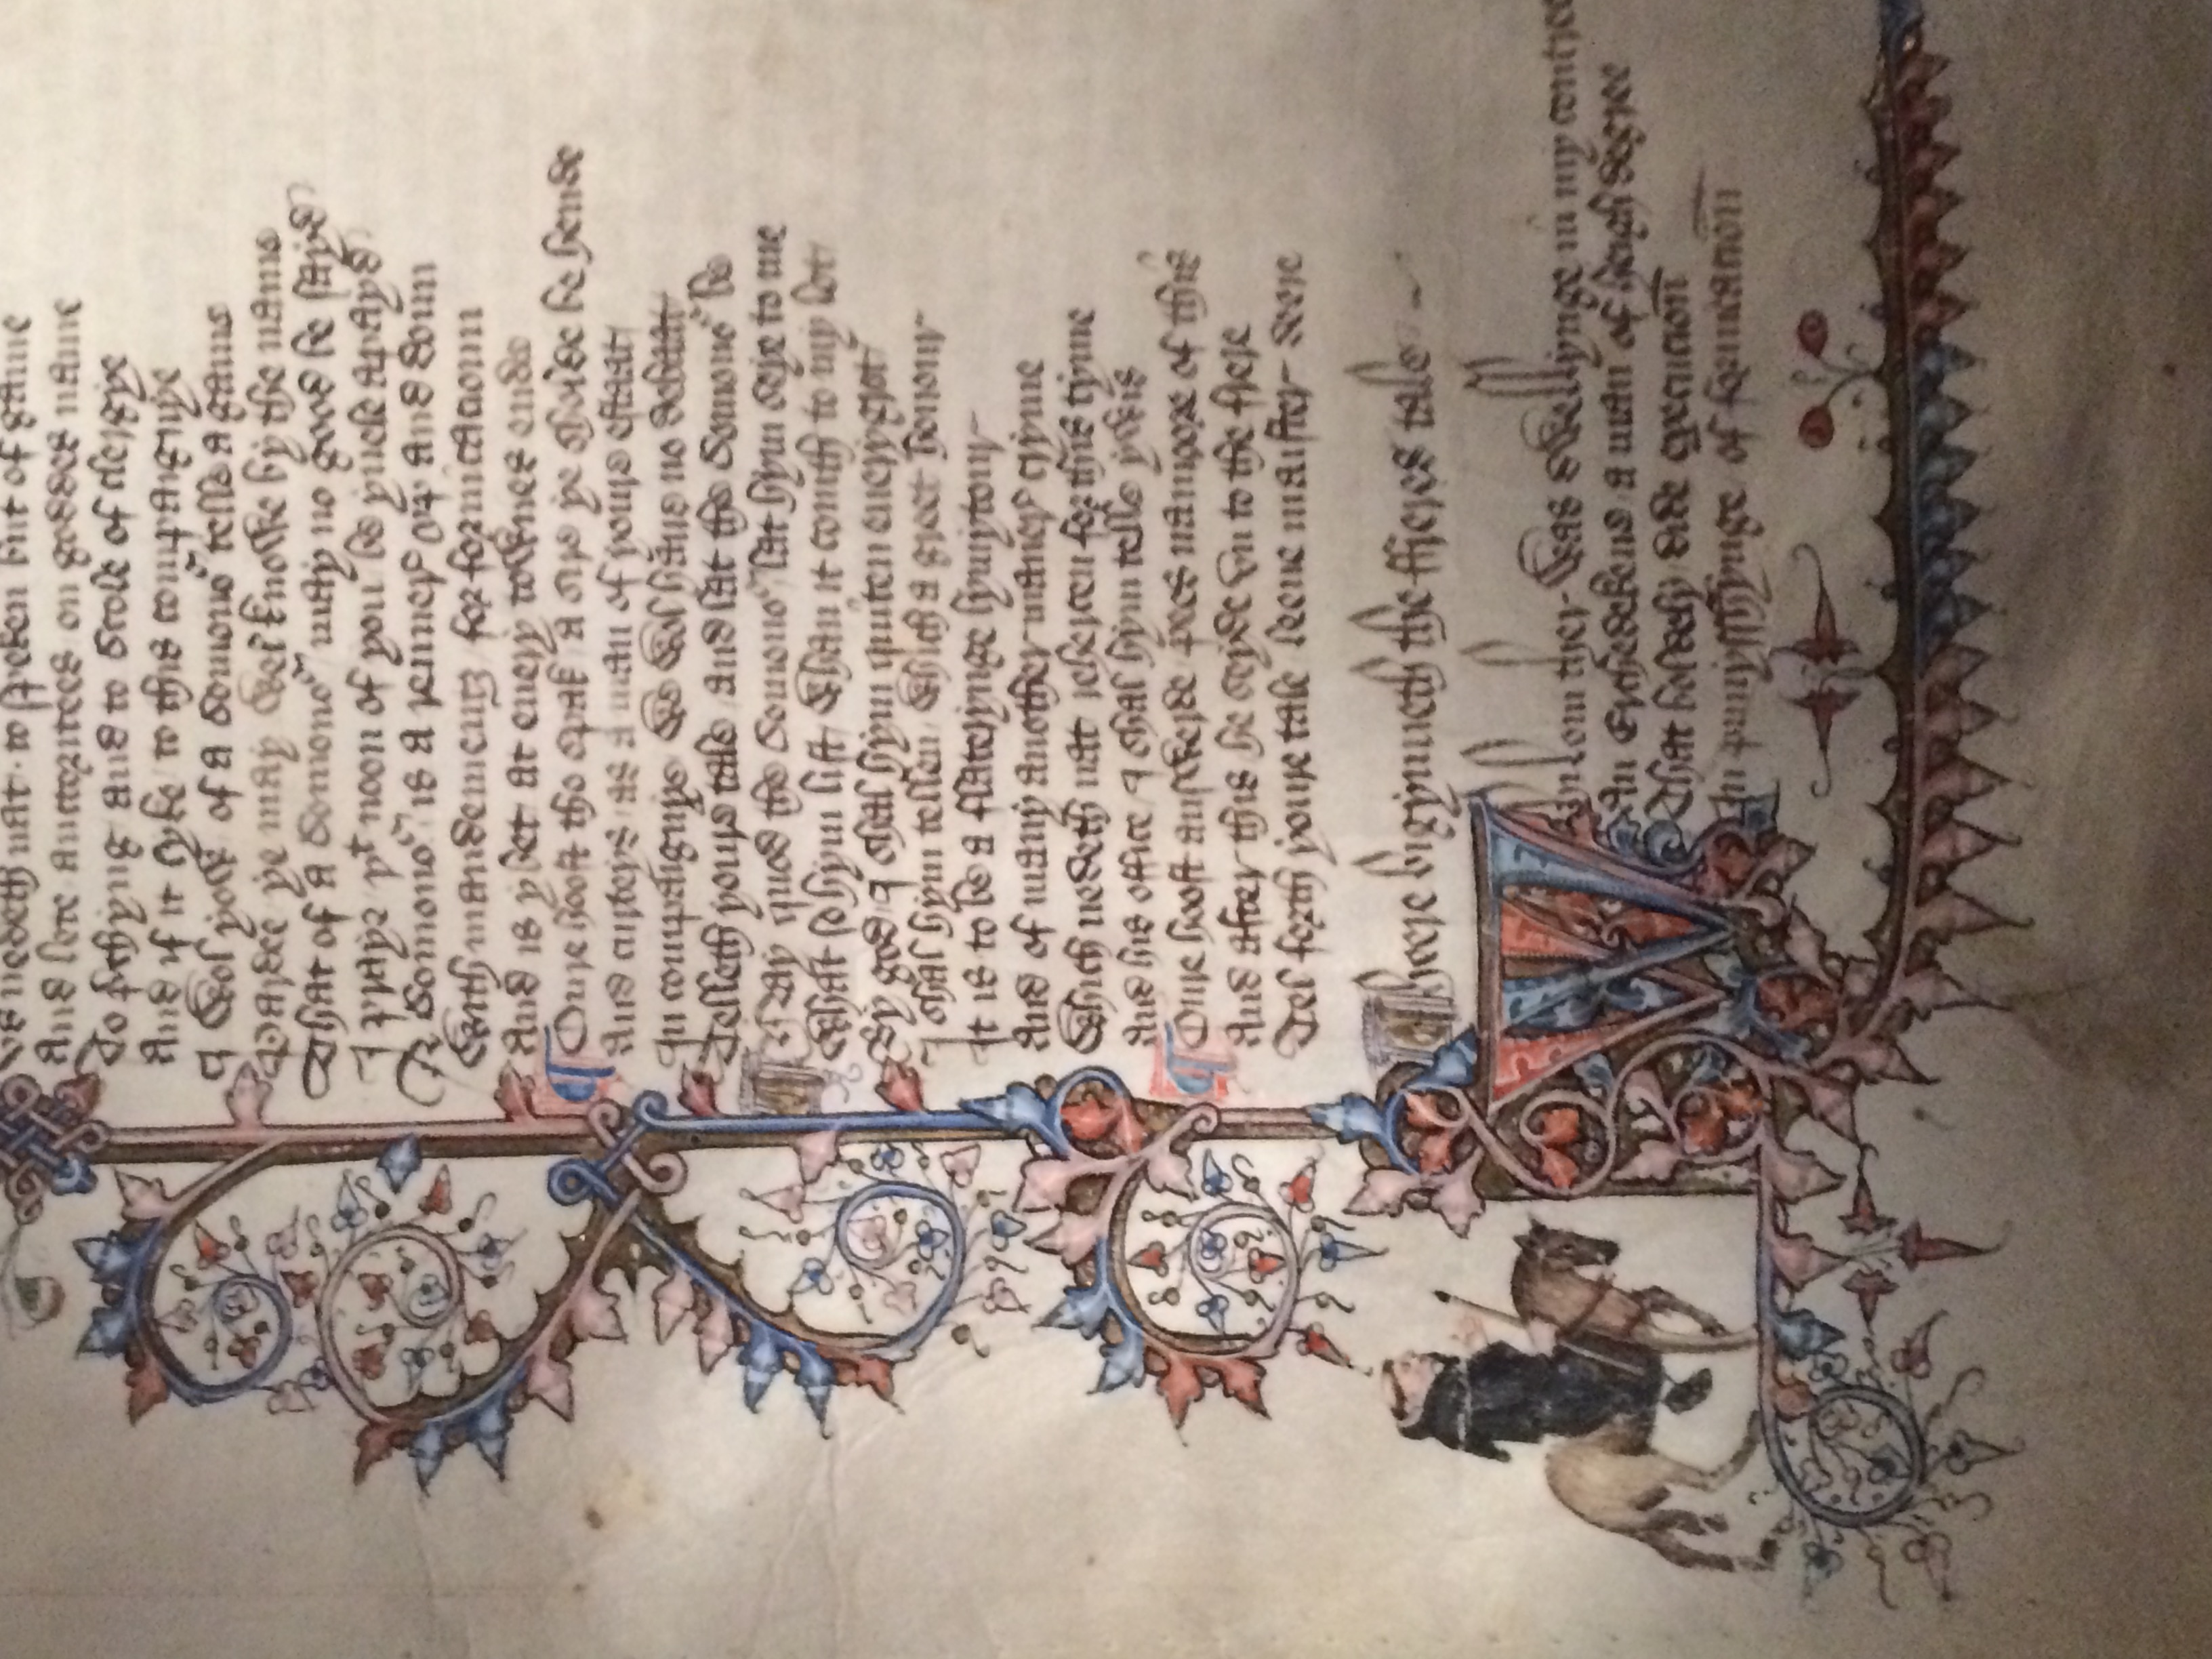 us nedeth nat to speken but of game
And lete auctoritees on goddes name
To p̃chyng and to Scole of clergye
And if it lyke to this compaignye
I wol yow of a Somonor telle a game
Pardee ye may wel knowe by the name
That of a Somonor may no good be sayd
I praye yt noon of you be yuele apayd
A Somonor is a renner up and doun
With mandementz for fornicacioun
And is ybet at euery townes ende
¶ Oure hoost tho spak a sire ye sholde be hende
And curteys as a man of youre estaat
In compaignye we wol haue no debaat
Telleth youre tale and lat the Somonor be
¶ Nay quod the Somonor lat hym seye to me
What so hym list whan it comth to my lot
By god I shal hym quiten euery grot
I shal hym tellen which a greet honour
It is to be a flaterynge lymytour
And of many another maner cryme
Which nedeth nat rehercen for this tyme
And his office I shal hym telle ywis
¶ Oure hoost answerde pees namoore of this
And after this he seyde vn to the frere
Tel forth youre tale leeue maister deere
¶ Heere bigynneth the ffreres tale
Whilom ther was dwellynge in my contree
An Erchedekene a man of heigh degree
That boldely dide execucion̄
In punysshynge of fornicacion̄